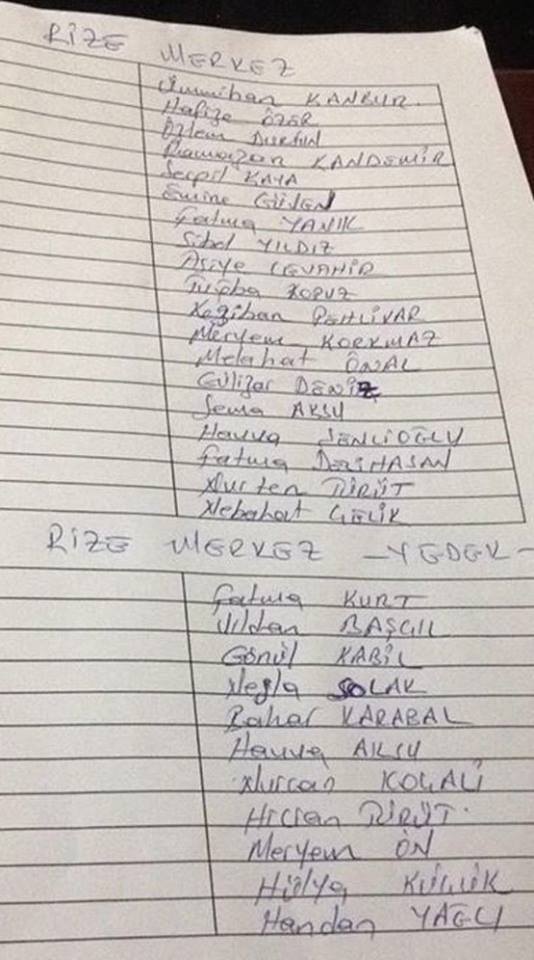 RİZE MERKEZ
Ümmihan KANBUR
Hafize ÖZER
Özlem DURGUN
Ramazan KANDEMİR
Serpil KAYA
Emine GÜVEN
Fatma YANIK
Sibel YILDIZ
Asiye CEVAHİR
Tuğba KOPUZ
Nezihan PEHLİVAN
Meryem KORKMAZ
Melahat ÖNAL
Gülizar DENİZ
Sema AKSU
Havva ŞENLİOĞLU
Fatma DELİHASAN
Nurten TÜRÜT
Nebahat ÇELİK
RİZE MERKEZ -YEDEK-
Fatma KURT
Vildan BAŞGIL
Gönül KABİL
Nejla SOLAK
Bahar KARABAL
Havva AKSU
Nurcan KOÇALİ
Hicran TÜRÜT
Meryem ÖN
Hülya KÜÇÜK
Handan YAĞCI